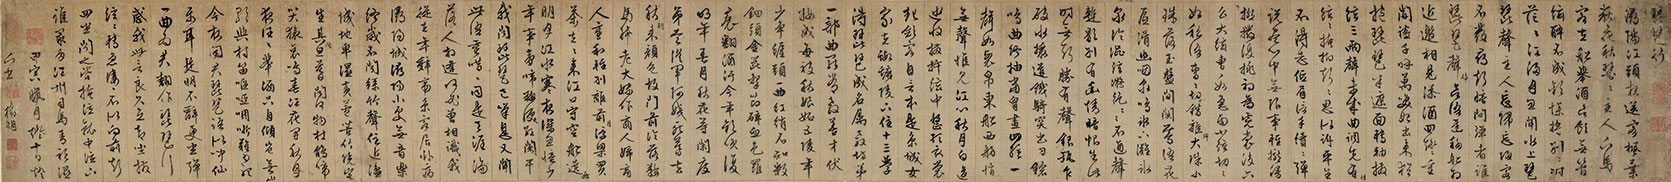 琵琶行
潯陽江頭夜送客楓葉
荻花秋瑟瑟主人下馬
客在船舉酒欲飲無管
絃醉不成歡慘將別別時
茫茫江浸月忽聞水上琵
琶聲主人忘歸客
不發尋聲暗問彈者誰
琵琶聲停欲語遲移船相
近邀相見添酒回燈重
開讌千呼萬喚始出來猶
抱琵琶半遮面轉軸撥
絃三兩聲未成曲調先有
情絃絃掩抑聲聲思似訴平生
不得志低眉信手續續彈
說盡心中無限事輕攏慢
撚撥復挑初為霓裳後六
么大絃嘈嘈如急雨小絃切切
如私語嘈嘈切切錯雜彈大珠小
珠落玉盤間關鶯語花
底滑幽咽流泉水下灘水
泉冷澀絃凝絕凝絕不通聲
暫歇別有幽情暗恨生此
時無聲勝有聲銀瓶乍
破水漿迸鐵騎突出刀鎗
鳴曲終抽撥當心畫四絃一
聲如裂帛東船西舫悄
無聲惟見江心秋月白沈
吟收撥插絃中整頓衣裳
起斂容自言本是京城女
家在蝦蟆陵下住十三學
得琵琶成名屬教坊第
一部曲罷常教善才伏
粧成每被秋娘妬五陵年
少爭纏頭一曲紅綃不知數
鈿頭銀篦擊節碎血色羅
裙翻酒污今年歡笑復
明年秋月春風等閒度
弟走從軍阿姨死暮去朝
來顏色故門前冷落鞍
馬稀老大嫁作商人婦商
人重利輕別離前月浮梁買
茶去去來江口守空船遶船
明月江水寒夜深忽夢
少年事夢啼粧淚紅闌干
我聞琵琶已嘆息又聞
此語重唧唧同是天涯淪
落人相逢何必曾相識我
從去年辭帝京謫居臥病
潯陽城潯陽小處無音樂
終歲不聞絲竹聲住近湓
城地卑濕黃蘆苦竹繞宅
生其間旦暮聞何物杜鵑啼
血猿哀鳴春江花朝秋月
夜往往取酒還獨傾豈無山
歌與村笛嘔啞嘲哳難為聽
今夜聞君琵琶語如聽仙
樂耳暫明莫辭更坐彈
一曲為君翻作琵琶行
感我此言良久立却坐促
絃絃轉急淒淒不似向前聲
滿坐聞之皆掩泣就中泣下
誰最多江州司馬青衫濕